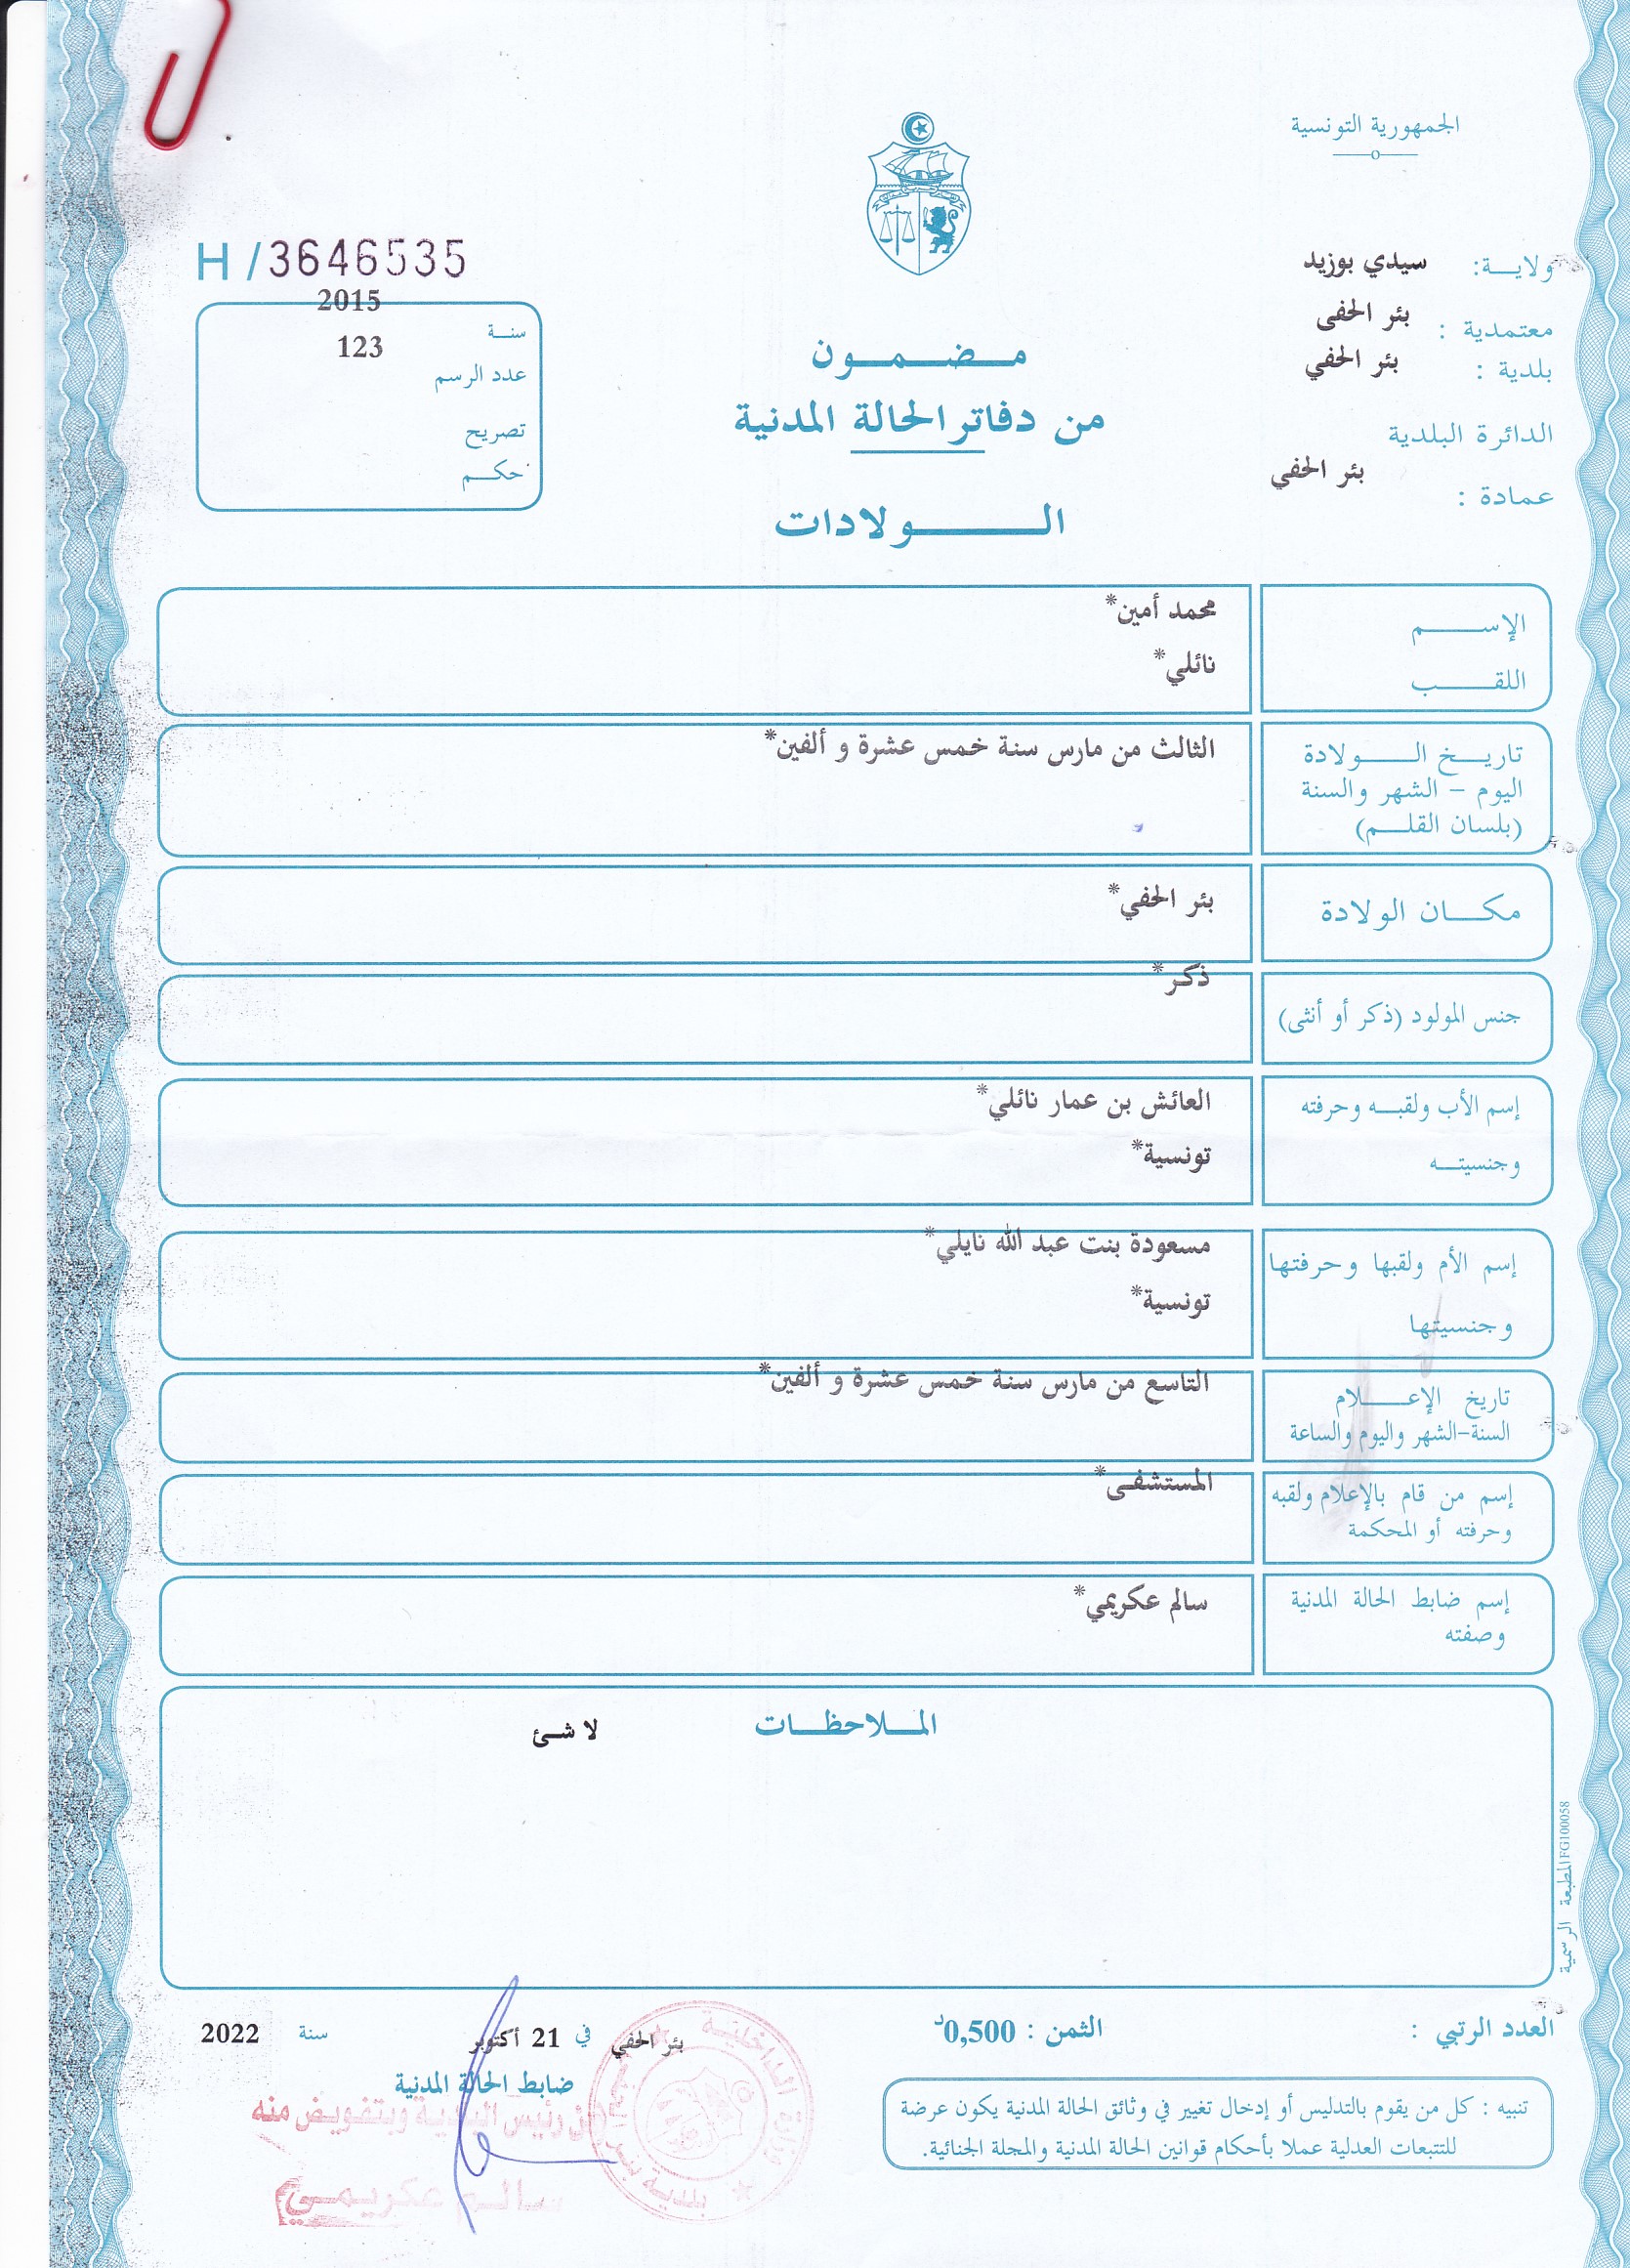 الجمهورية التونسية
ولايـة: سيدي بوزيد
معتمدية : بئر الحفى
بلدية : بئر الحفي
الدائرة البلدية
بئر الحفي
عمادة :
H / 3646535
2015
سنـة
123
عدد الرسم
تصريح
حكـم
مـضـمـون
من دفاتر الحالة المدنية
الـولادات
الإسـم
محمد أمين*
اللقـب
نائلي*
تاريـخ الـولادة
اليوم – الشهر والسنة
(بلسان القلـم)
الثالث من مارس سنة خمس عشرة و ألفين*
مكـان الولادة
بئر الحفي*
جنس المولود (ذكر أو أنثى)
ذكر*
إسم الأب ولقبـه وحرفته
العائش بن عمار نائلي*
وجنسيتـه
تونسية*
إسم الأم ولقبها وحرفتها
مسعودة بنت عبد الله نايلي*
وجنسيتها
تونسية*
تاريخ الإعـلام
السنة-الشهر واليوم والساعة
التاسع من مارس سنة خمس عشرة و ألفين*
إسم من قام بالإعلام ولقبه
وحرفته أو المحكمة
المستشفى*
إسم ضابط الحالة المدنية
وصفته
سالم عكريمي*
المـلاحظـات
لا شئ
المطبعة الرسمية FG100058
العدد الرتبي :
الثمن : 0,500د
بئر الحفي في 21 أكتوبر سنة 2022
ضابط الحالة المدنية
رئيس البلدية وبتفويض منه
سالم عكريمي
بلدية بئر الحفي
تنبيه : كل من يقوم بالتدليس أو إدخال تغيير في وثائق الحالة المدنية يكون عرضة
للتتبعات العدلية عملا بأحكام قوانين الحالة المدنية والمجلة الجنائية.